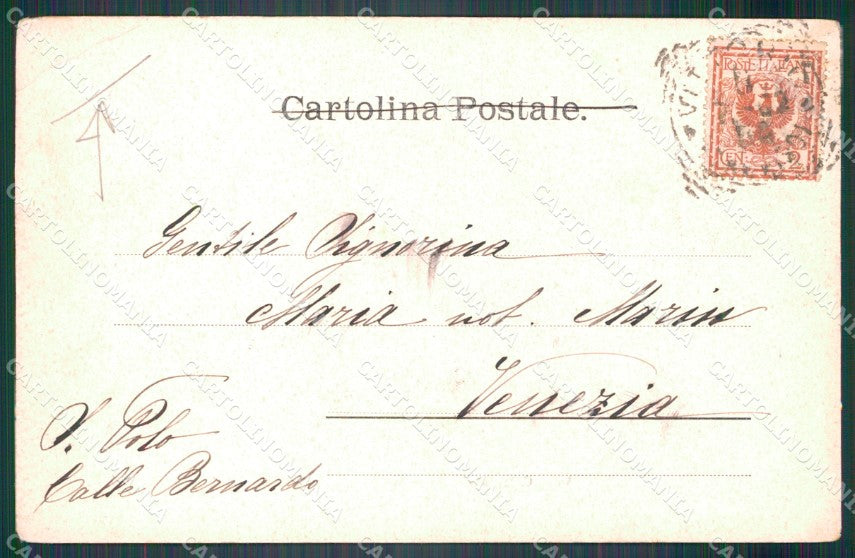 Cartolina Postale.
POSTE ITALIANE
CEN. 2
Gentile Signorina
Maria not. Marin
Venezia
S. Polo
Calle Bernardo
CARTOLINOMANIA